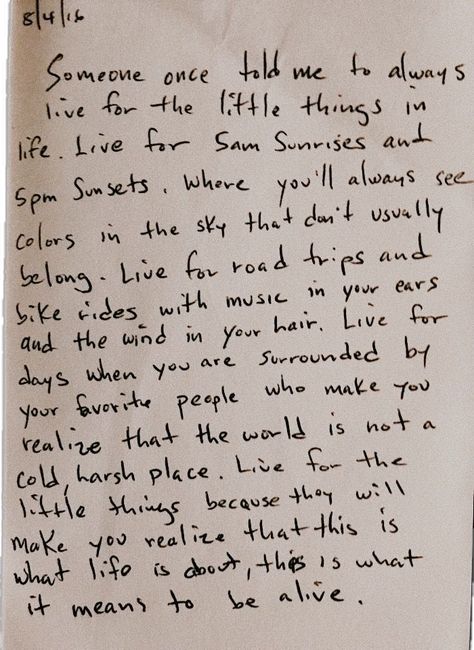 8/4/16
Someone once told me to always
live for the little things in
life. Live for 5am Sunrises and
5pm Sunsets. Where you'll always see
colors in the sky that don't usually
belong. Live for road trips and
bike rides with music in your ears
and the wind in your hair. Live for
days when you are surrounded by
your favorite people who make you
realize that the world is not a
cold, harsh place. Live for the
little things because they will
make you realize that this is
what life is about, this is what
it means to be alive.